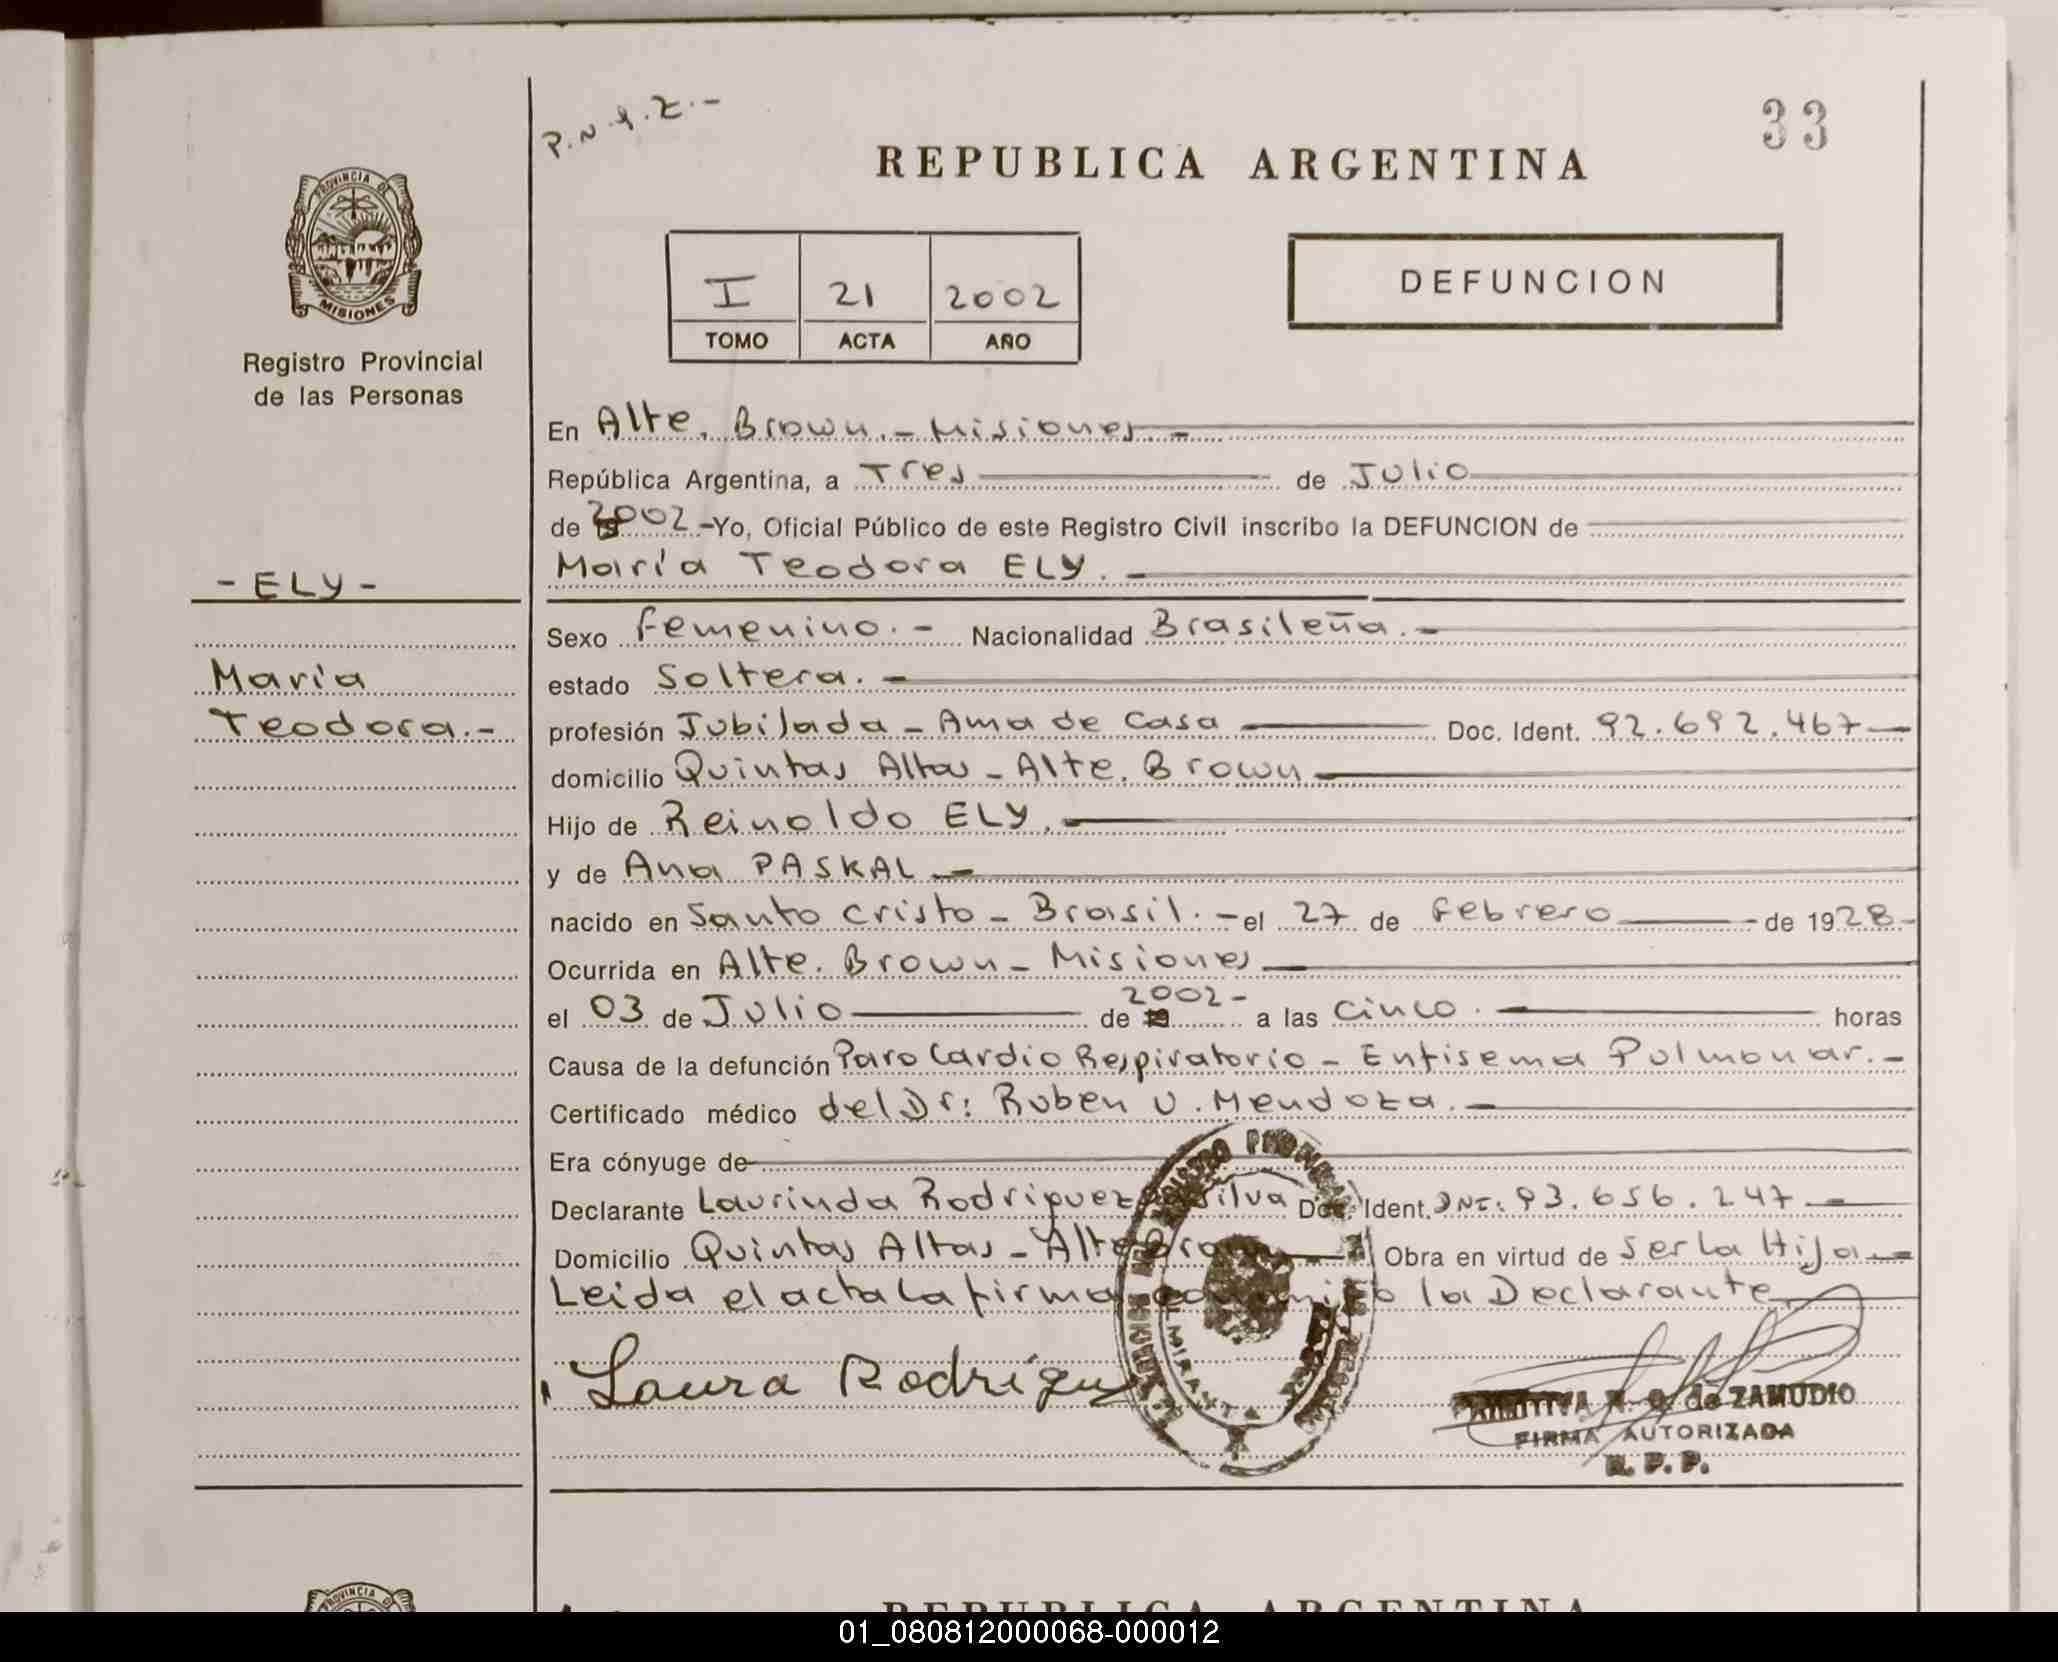 P.N.I.Z.-
33
REPUBLICA ARGENTINA
PROVINCIA DE
MISIONES
Registro Provincial
de las Personas
I 21 2002
TOMO ACTA AÑO
DEFUNCION
En Alte. Brown.- Misiones.-
República Argentina, a Tres de Julio
de 2002.-Yo, Oficial Público de este Registro Civil inscribo la DEFUNCION de
María Teodora ELY.-
- ELY -
María
Teodora.-
Sexo Femenino.- Nacionalidad Brasileña.-
estado Soltera.-
profesión Jubilada - Ama de Casa Doc. Ident. 92.692.467-
domicilio Quintas Altas - Alte. Brown
Hijo de Reinoldo ELY.-
y de Ana PASKAL-
nacido en Santo Cristo - Brasil.- el 27 de Febrero de 1928-
Ocurrida en Alte. Brown - Misiones
el 03 de Julio de 2002- a las Cinco.- horas
Causa de la defunción Paro Cardio Respiratorio - Enfisema Pulmonar.-
Certificado médico del Dr: Ruben U. Mendoza.-
Era cónyuge de
Declarante Laurinda Rodriguez Silva Doc. Ident. DNI: 93.656.247-
Domicilio Quintas Altas - Alte Brown Obra en virtud de Ser la Hija.-
Leida el acta la firma conmigo la Declarante
Laura Rodriguez
N. O. de ZAMUDIO
FIRMA AUTORIZADA
R. P. P.
PROVINCIA
REPUBLICA ARGENTINA
01_080812000068-000012